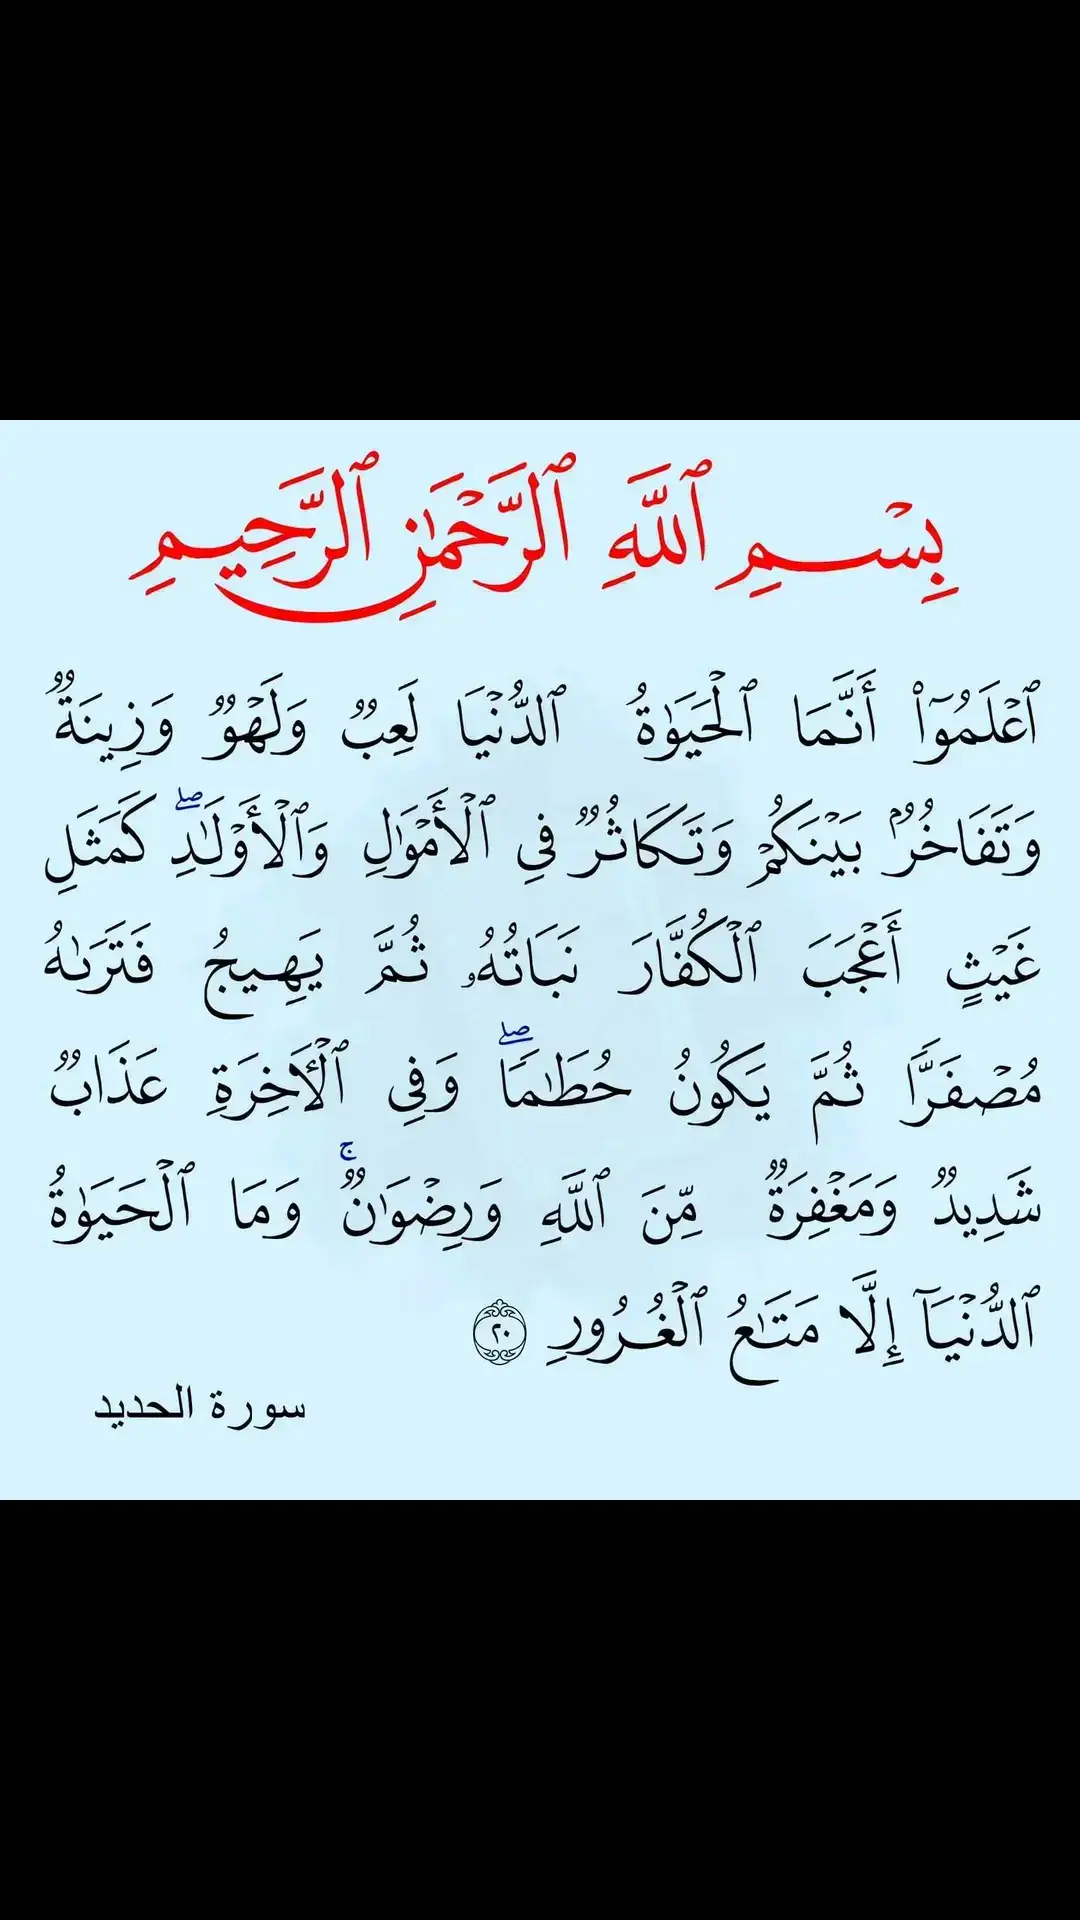 بِسْمِ ٱللَّهِ ٱلرَّحْمَٰنِ ٱلرَّحِيمِ
ٱعْلَمُوٓا۟ أَنَّمَا ٱلْحَيَوٰةُ ٱلدُّنْيَا لَعِبٌ وَلَهْوٌ وَزِينَةٌ
وَتَفَاخُرٌۢ بَيْنَكُمْ وَتَكَاثُرٌ فِى ٱلْأَمْوَٰلِ وَٱلْأَوْلَٰدِ ۖ كَمَثَلِ
غَيْثٍ أَعْجَبَ ٱلْكُفَّارَ نَبَاتُهُۥ ثُمَّ يَهِيجُ فَتَرَىٰهُ
مُصْفَرًّا ثُمَّ يَكُونُ حُطَٰمًا ۖ وَفِى ٱلْءَاخِرَةِ عَذَابٌ
شَدِيدٌ وَمَغْفِرَةٌ مِّنَ ٱللَّهِ وَرِضْوَٰنٌ ۚ وَمَا ٱلْحَيَوٰةُ
ٱلدُّنْيَآ إِلَّا مَتَٰعُ ٱلْغُرُورِ ٢٠
سورة الحديد